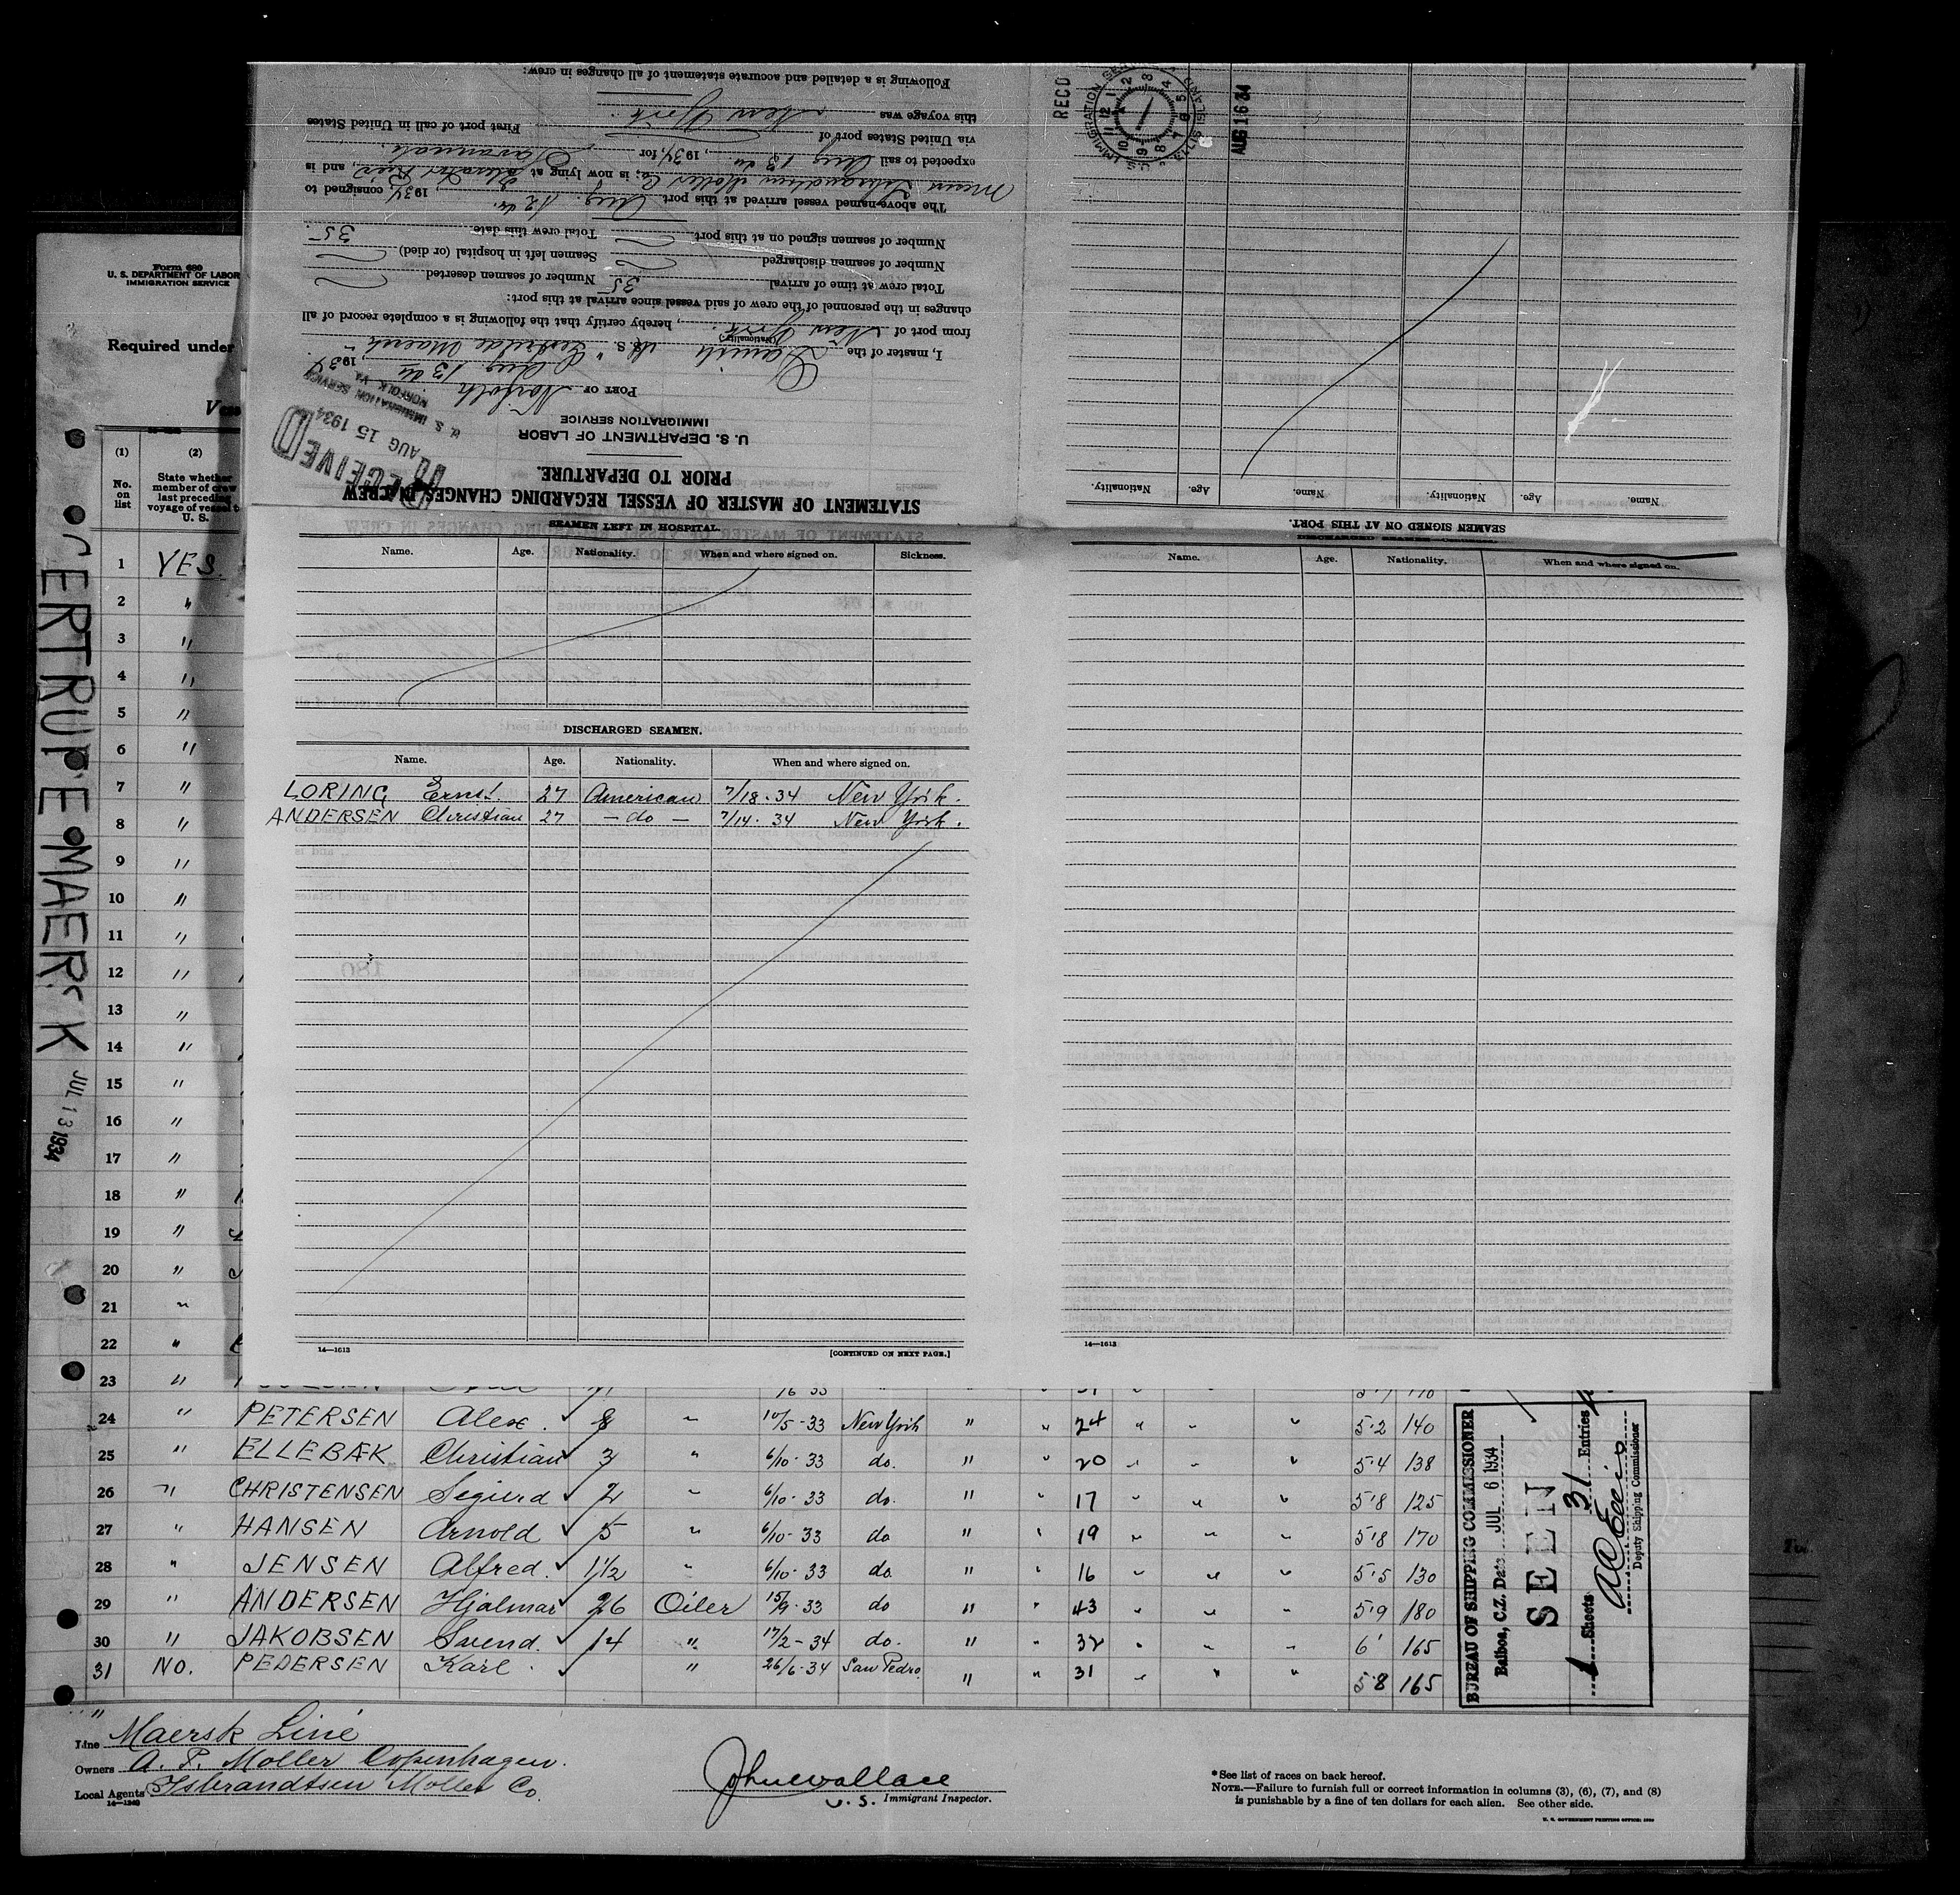 Form 680
U. S. DEPARTMENT OF LABOR
IMMIGRATION SERVICE
Required under
(1) (2)
No. on list
State whether member of crew last preceding voyage of vessel U. S.
GERTRUDE MAERSK JUL 13 1934
1 YES
2 "
3 "
4 "
5 "
6 "
7 "
8 "
9 "
10 "
11 "
12 "
13 "
14 "
15 "
16 "
17 "
18 "
19 "
20 "
21 "
22 "
23 "
STATEMENT OF MASTER OF VESSEL REGARDING CHANGES IN CREW
PRIOR TO DEPARTURE.
RECEIVED
AUG 15 1934
U. S. IMMIGRATION SERVICE
NORFOLK VA
U. S. DEPARTMENT OF LABOR
IMMIGRATION SERVICE
PORT OF Norfolk Aug. 13th, 1934
I, master of the Danish S. S. "Gertrude Maersk"
(Nationality)
from port of New York, hereby certify that the following is a complete record of all
changes in the personnel of the crew of said vessel since arrival at this port:
Total crew at time of arrival 35 Number of seamen deserted
Number of seamen discharged Seamen left in hospital (or died)
Number of seamen signed on at this port Total crew this date 35
The above-named vessel arrived at this port Aug. 12th. 1934, consigned to
Isbrandtsen Moller Co; is now lying at, and is
expected to sail Aug 13th, 1934, for Savannah.
via United States port of First port of call in United States
this voyage was New York.
Following is a detailed and accurate statement of all changes in crew:
RECD
IMMIGRATION
ELLIS ISLAND
AUG 16 34
SEAMEN SIGNED ON AT THIS PORT.
Name. Age. Nationality. Name. Age. Nationality.
SEAMEN LEFT IN HOSPITAL.
Name. Age. Nationality. When and where signed on. Sickness.
DISCHARGED SEAMEN.
Name. Age. Nationality. When and where signed on.
LORING Ernst. 27 American 7/18-34 New York.
ANDERSEN Christian 27 - do - 7/14-34 New York.
14—1613 [CONTINUED ON NEXT PAGE.]
Name. Age. Nationality. When and where signed on.
14—1613
24 " PETERSEN Alex. 8 " 10/5-33 New York " " 24 " " " 5·2 140
25 " ELLEBÆK Christian 3 " 6/10-33 do. " " 20 " " 5·4 138
26 " CHRISTENSEN Sigurd 2 " 6/10-33 do. " " 17 " " " 5·8 125
27 " HANSEN Arnold 5 " 6/10-33 do " " 19 " " " 5·8 170
28 " JENSEN Alfred. 1 1/2 " 6/10-33 do " " 16 " " " 5·5 130
29 " ANDERSEN Hjalmar 26 Oiler 15/9-33 do " " 43 " " " 5·9 180
30 " JAKOBSEN Svend. 14 " 17/2-34 do. " " 32 " " " 6' 165
31 NO. PEDERSEN Karl. " 26/6-34 San Pedro " " 31 " " " 5·8 165
BUREAU OF SHIPPING COMMISSIONER
Balboa, C.Z. Date JUL 6 1934
SEEN
1 Sheets 31 Entries
Deputy Shipping Commissioner
Line Maersk Line
Owners A. P. Moller Copenhagen.
Local Agents Isbrandtsen Moller Co.
14—1240
John Wallace
U. S. Immigrant Inspector.
* See list of races on back hereof.
NOTE.—Failure to furnish full or correct information in columns (3), (6), (7), and (8)
is punishable by a fine of ten dollars for each alien. See other side.
U. S. GOVERNMENT PRINTING OFFICE